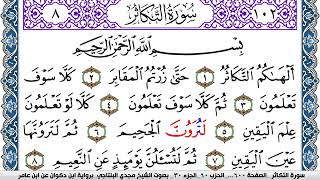 ١٠٢ سُورَةُ التَّكَاثُرِ ٨
بِسْمِ اللَّهِ الرَّحْمَٰنِ الرَّحِيمِ
أَلْهَىٰكُمُ التَّكَاثُرُ ١ حَتَّىٰ زُرْتُمُ الْمَقَابِرَ ٢ كَلَّا سَوْفَ
تَعْلَمُونَ ٣ ثُمَّ كَلَّا سَوْفَ تَعْلَمُونَ ٤ كَلَّا لَوْ تَعْلَمُونَ
عِلْمَ الْيَقِينِ ٥ لَتُرَوُنَّ الْجَحِيمَ ٦ ثُمَّ لَتَرَوُنَّهَا
عَيْنَ الْيَقِينِ ٧ ثُمَّ لَتُسْـَٔلُنَّ يَوْمَئِذٍ عَنِ النَّعِيمِ ٨
سورة التكاثر الصفحة ٦٠٠... الحزب ٦٠ الجزء ٣٠ بصوت الشيخ مجدي البنتاجي برواية ابن ذكوان عن ابن عامر